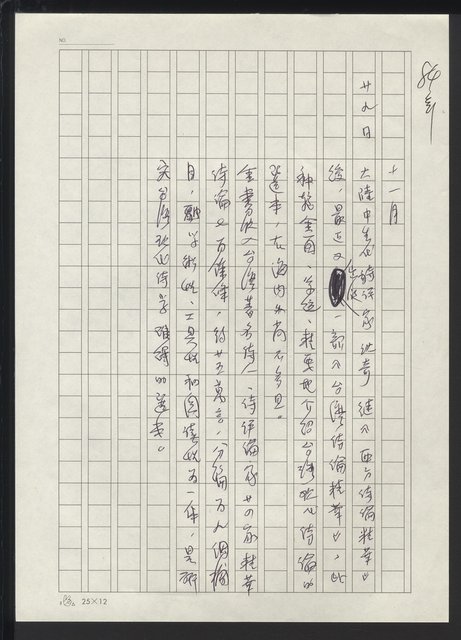 NO.
84年
十一月
廿九日
大陸中生代詩評家沈奇繼《西方詩論精華》
後,最近又出版一部《台灣詩論精華》,此
種較全面、系統、扼要地介紹台灣現代詩論的
選本,在海內外尚不多見。
全書收入台灣著名詩人、詩評論家廿四家精華
詩論又百餘條,約廿五萬言,分編為九個欄
目,融學術性、工具性和閱讀性為一体,是研
究台灣現代詩學難得的選本。
25×12